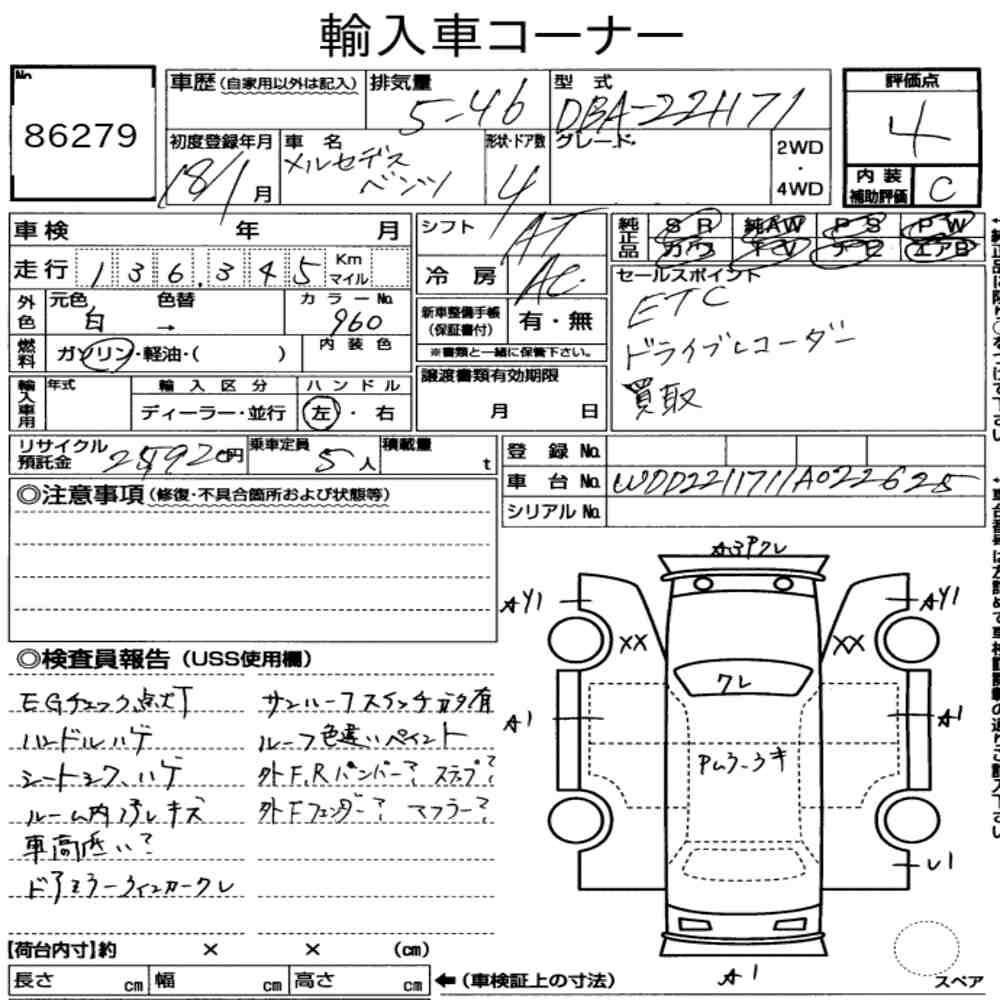 輸入車コーナー
No.
86279
車歴 (自家用以外は記入)
排気量
5-46
型式
DBA-221171
評価点
4
初度登録年月
18/1月
車名
メルセデス
ベンツ
形状・ドア数
4
グレード
2WD
・
4WD
内装
補助評価
C
車検 年 月
シフト
AT
純正品
SR 純AW PS PW
カワ TV ナビ エアB
走行 136,345 Km マイル
冷房
AC
セールスポイント
ETC
ドライブレコーダー
買取
外色
元色 色替
白 →
カラーNo.
960
新車整備手帳
(保証書付)
有・無
※書類と一緒に保管下さい。
燃料
ガソリン・軽油・( )
内装色
輸入車用
年式
輸入区分
ディーラー・並行
ハンドル
左・右
譲渡書類有効期限
月 日
リサイクル
預託金
25920円
乗車定員
5人
積載量
t
登録No.
車台No.
WDD2211711A022625
シリアルNo.
◎注意事項 (修復・不具合箇所および状態等)
A3Pワレ
AY1
AY1
XX
XX
ワレ
A1
A1
U1
A1
スペア
◎検査員報告 (USS使用欄)
EGチェック点灯
ハンドルハゲ
シートシワ、ハゲ
ルーム内汚レキズ
車高低い?
ドアミラーウィンカーワレ
サンルーフスイッチガタ有
ルーフ色違いペイント
外F,Rバンパー? ステップ?
外Fフェンダー? マフラー?
[荷台内寸]約 × × (cm)
長さ cm 幅 cm 高さ cm ←(車検証上の寸法)